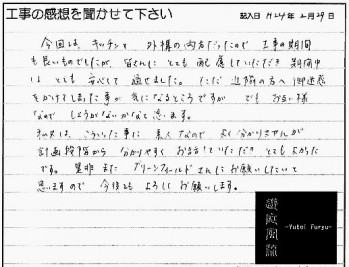 工事の感想を聞かせて下さい
記入日 H24年2月29日
今回は、キッチンと 外構の両方だったので 工事の期間
も長いものでしたが、皆さんに とても 配慮していただき 期間中
は とても 安心して 過せました。 ただ 近隣の方へ 御迷惑
をかけてしまった事が 気になるところですが でも お互い様
なので しょうがないかなと 思います。
私共は、こういった事に 素人なので よく分かりませんが
計画段階から 分かりやすく お話していただき とても よかった
です。 是非 また グリーンフィールドさんに お願いしたいと
思いますので 今後とも よろしく お願いします。
遊庭風流
-Yutei Furyu-